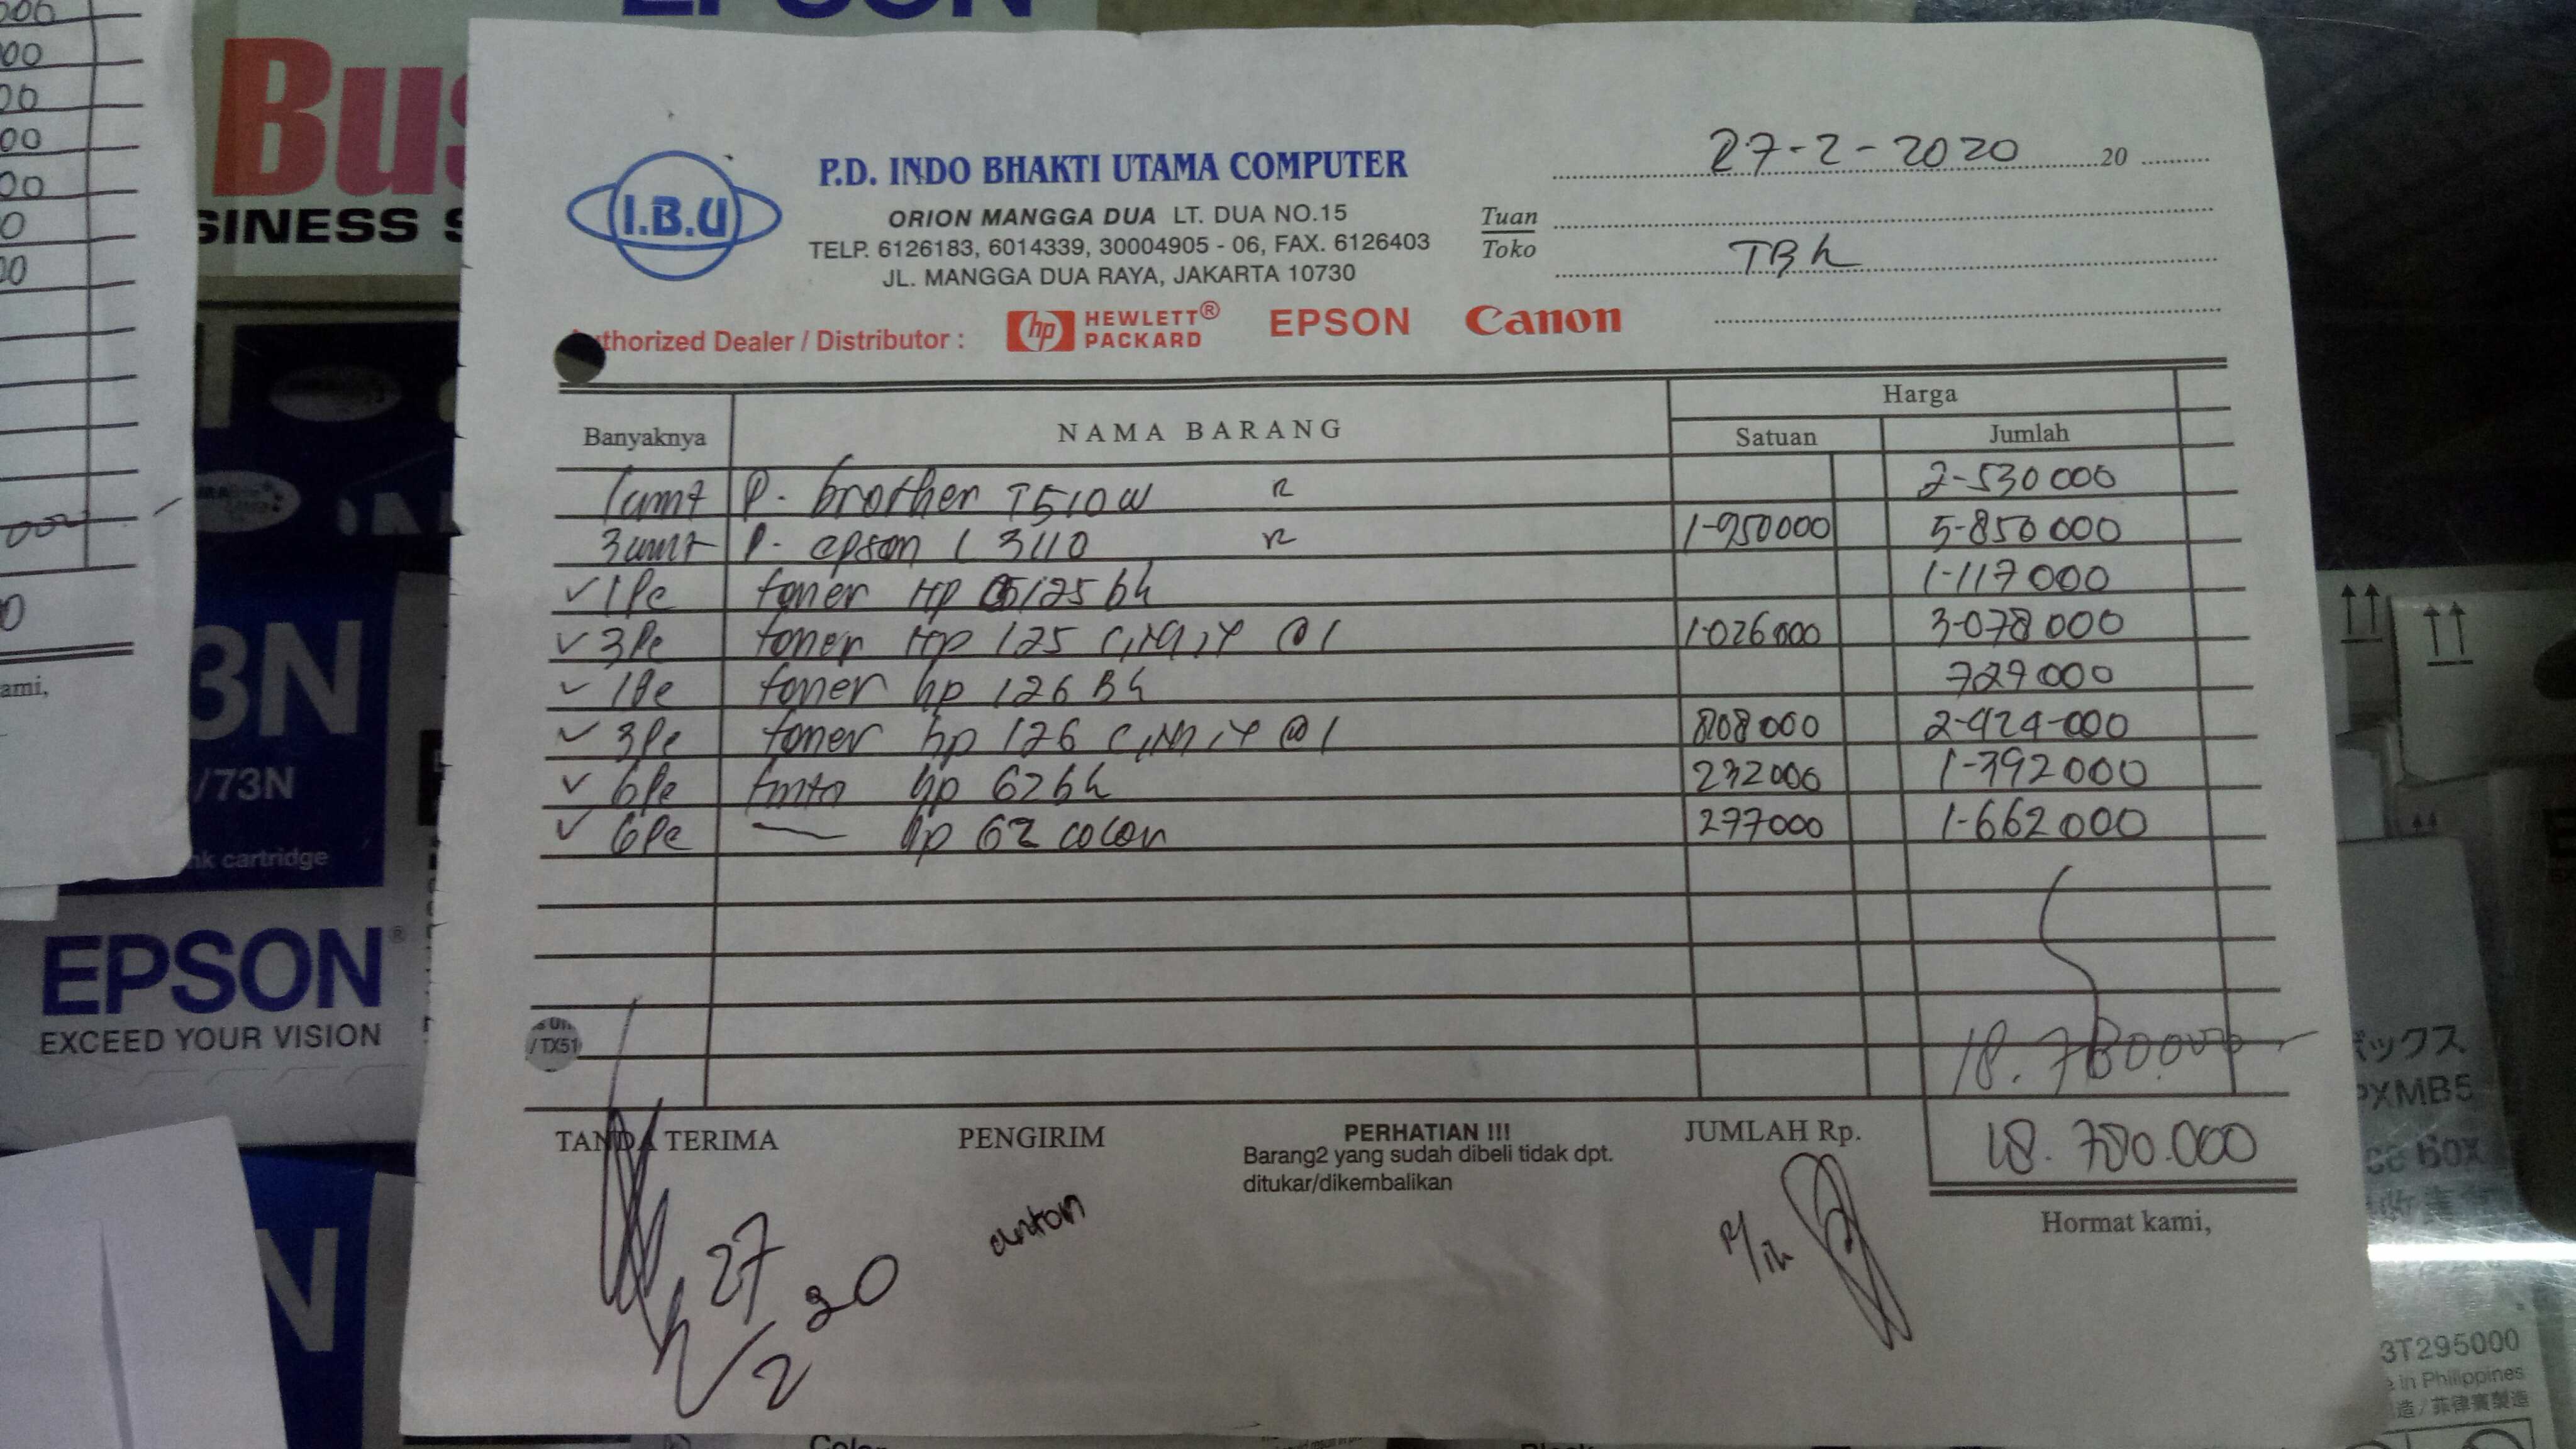 EPSON
Bus
SINESS S
P.D. INDO BHAKTI UTAMA COMPUTER
I.B.U
ORION MANGGA DUA LT. DUA NO.15
TELP. 6126183, 6014339, 30004905 - 06, FAX. 6126403
JL. MANGGA DUA RAYA, JAKARTA 10730
27-2-2020 20
Tuan
Toko TBh
thorized Dealer / Distributor : hp HEWLETT® PACKARD EPSON Canon
Harga
Banyaknya NAMA BARANG Satuan Jumlah
1 unit P. brother T510W 2-530 000
3 unit P. epson L 3110 1-950000 5-850 000
✓ 1Pc toner Hp 125 bk 1-117 000
✓ 3Pc toner Hp 125 C,M,Y @1 1.026000 3-078 000
✓ 1Pc toner hp 126 Bk 727 000
✓ 3Pc toner hp 126 C,M,Y @1 808 000 2-424-000
✓ 6Pc tinta hp 62 bk 232000 1-392 000
✓ 6Pc — hp 62 color 277000 1-662 000
18.780.000
TANDA TERIMA PENGIRIM PERHATIAN !!! JUMLAH Rp. 18.780.000
Barang2 yang sudah dibeli tidak dpt.
ditukar/dikembalikan
Hormat kami,
anton
27/2 20
ami,
3N
/73N
nk cartridge
EPSON®
EXCEED YOUR VISION
/TX51
N
ックス
PXMB5
ce box
3T295000
in Philippines
造/菲律賓製造